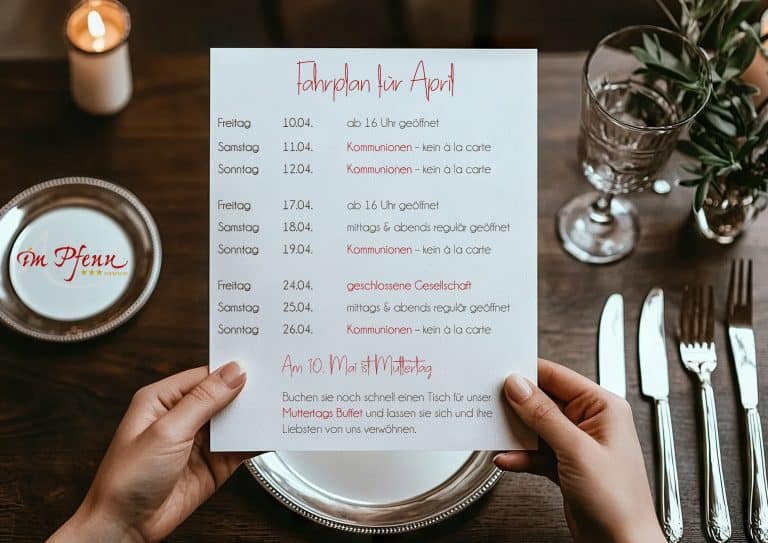 Fahrplan für April
Freitag 10.04. ab 16 Uhr geöffnet
Samstag 11.04. Kommunionen – kein à la carte
Sonntag 12.04. Kommunionen – kein à la carte
Freitag 17.04. ab 16 Uhr geöffnet
Samstag 18.04. mittags & abends regulär geöffnet
Sonntag 19.04. Kommunionen – kein à la carte
Freitag 24.04. geschlossene Gesellschaft
Samstag 25.04. mittags & abends regulär geöffnet
Sonntag 26.04. Kommunionen – kein à la carte
Am 10. Mai ist Muttertag
Buchen sie noch schnell einen Tisch für unser
Muttertags Buffet und lassen sie sich und ihre
Liebsten von uns verwöhnen.
im Pfenn